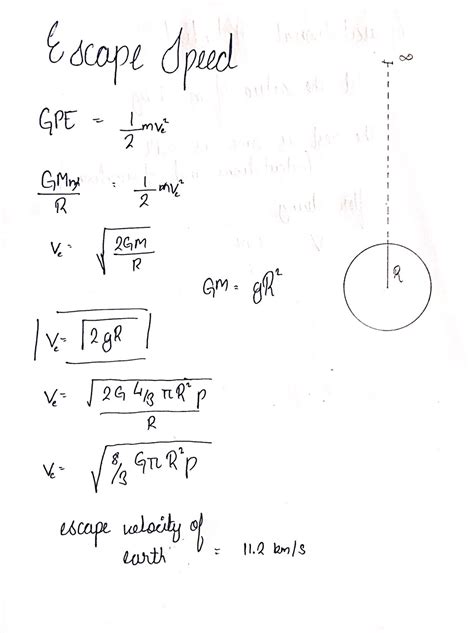 Escape Speed
∞
GPE = 1/2 mv_e²
GMm/R = 1/2 mv_e²
V_e = √(2GM/R)
R
GM = gR²
V_e = √(2gR)
V_e = √(2G 4/3 πR²ρ / R)
V_e = √(8/3 GπR²ρ)
escape velocity of
earth = 11.2 km/s